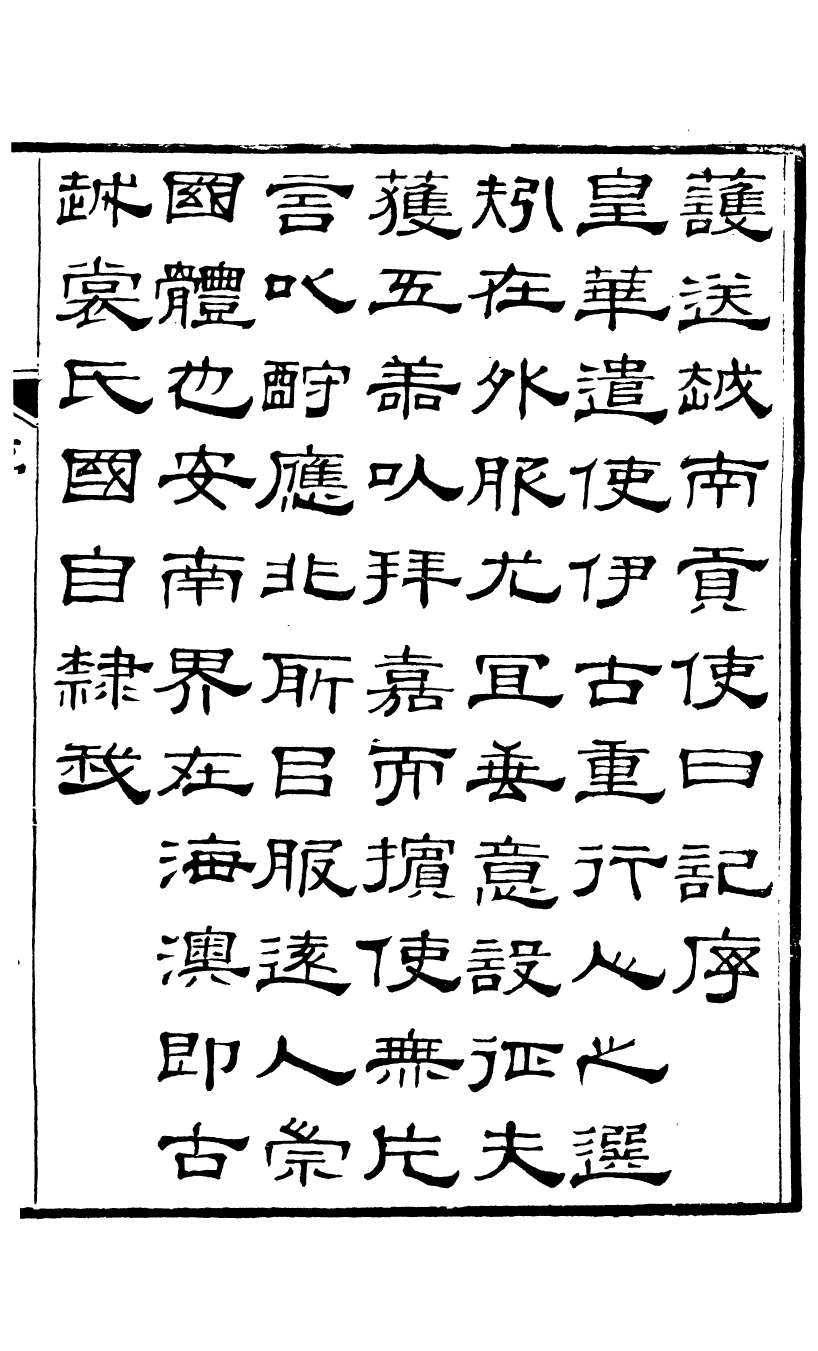 護送越南貢使日記序
皇華遣使伊古重行人之選
矧在外服尤宜垂意設征夫
獲五善以拜嘉而擯使無片
言以酧應非所㠯服遠人崇
國體也安南界在海澳即古
越裳氏國自隸我